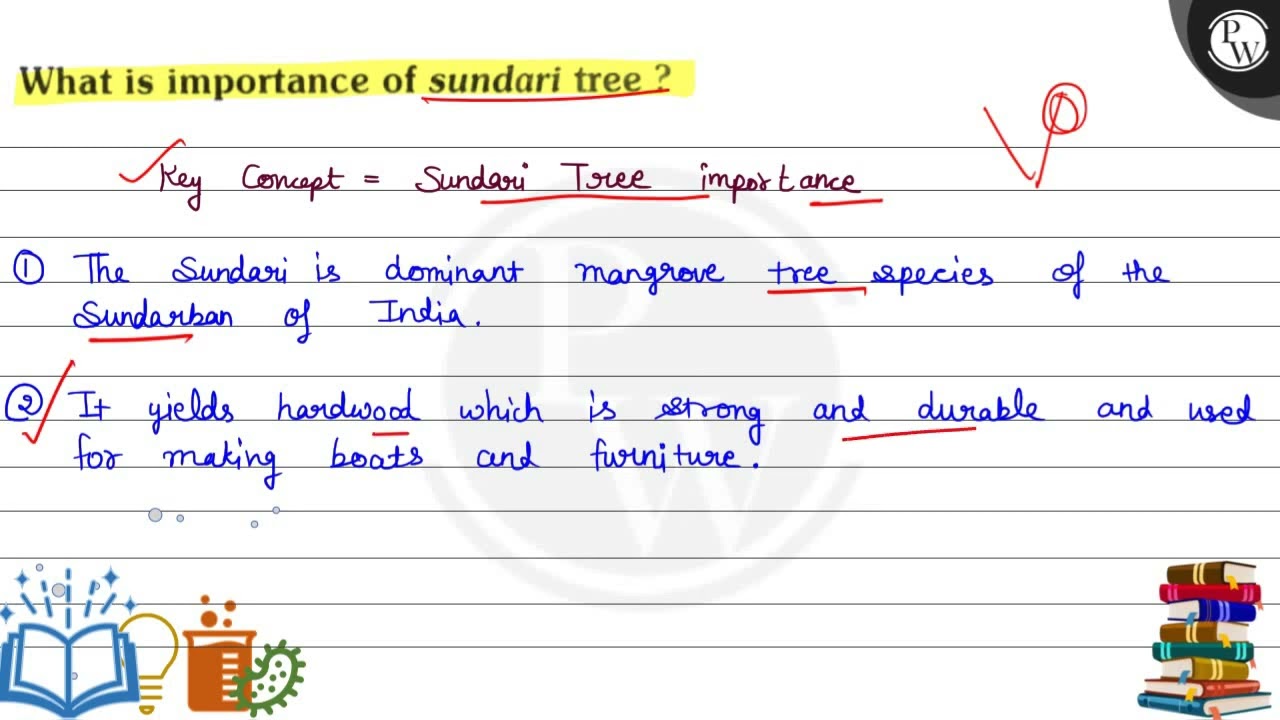 What is importance of sundari tree ?
PW
Key Concept = Sundari Tree importance
① The Sundari is dominant mangrove tree species of the
Sundarban of India.
② It yields hardwood which is strong and durable and used
for making boats and furniture.
PW